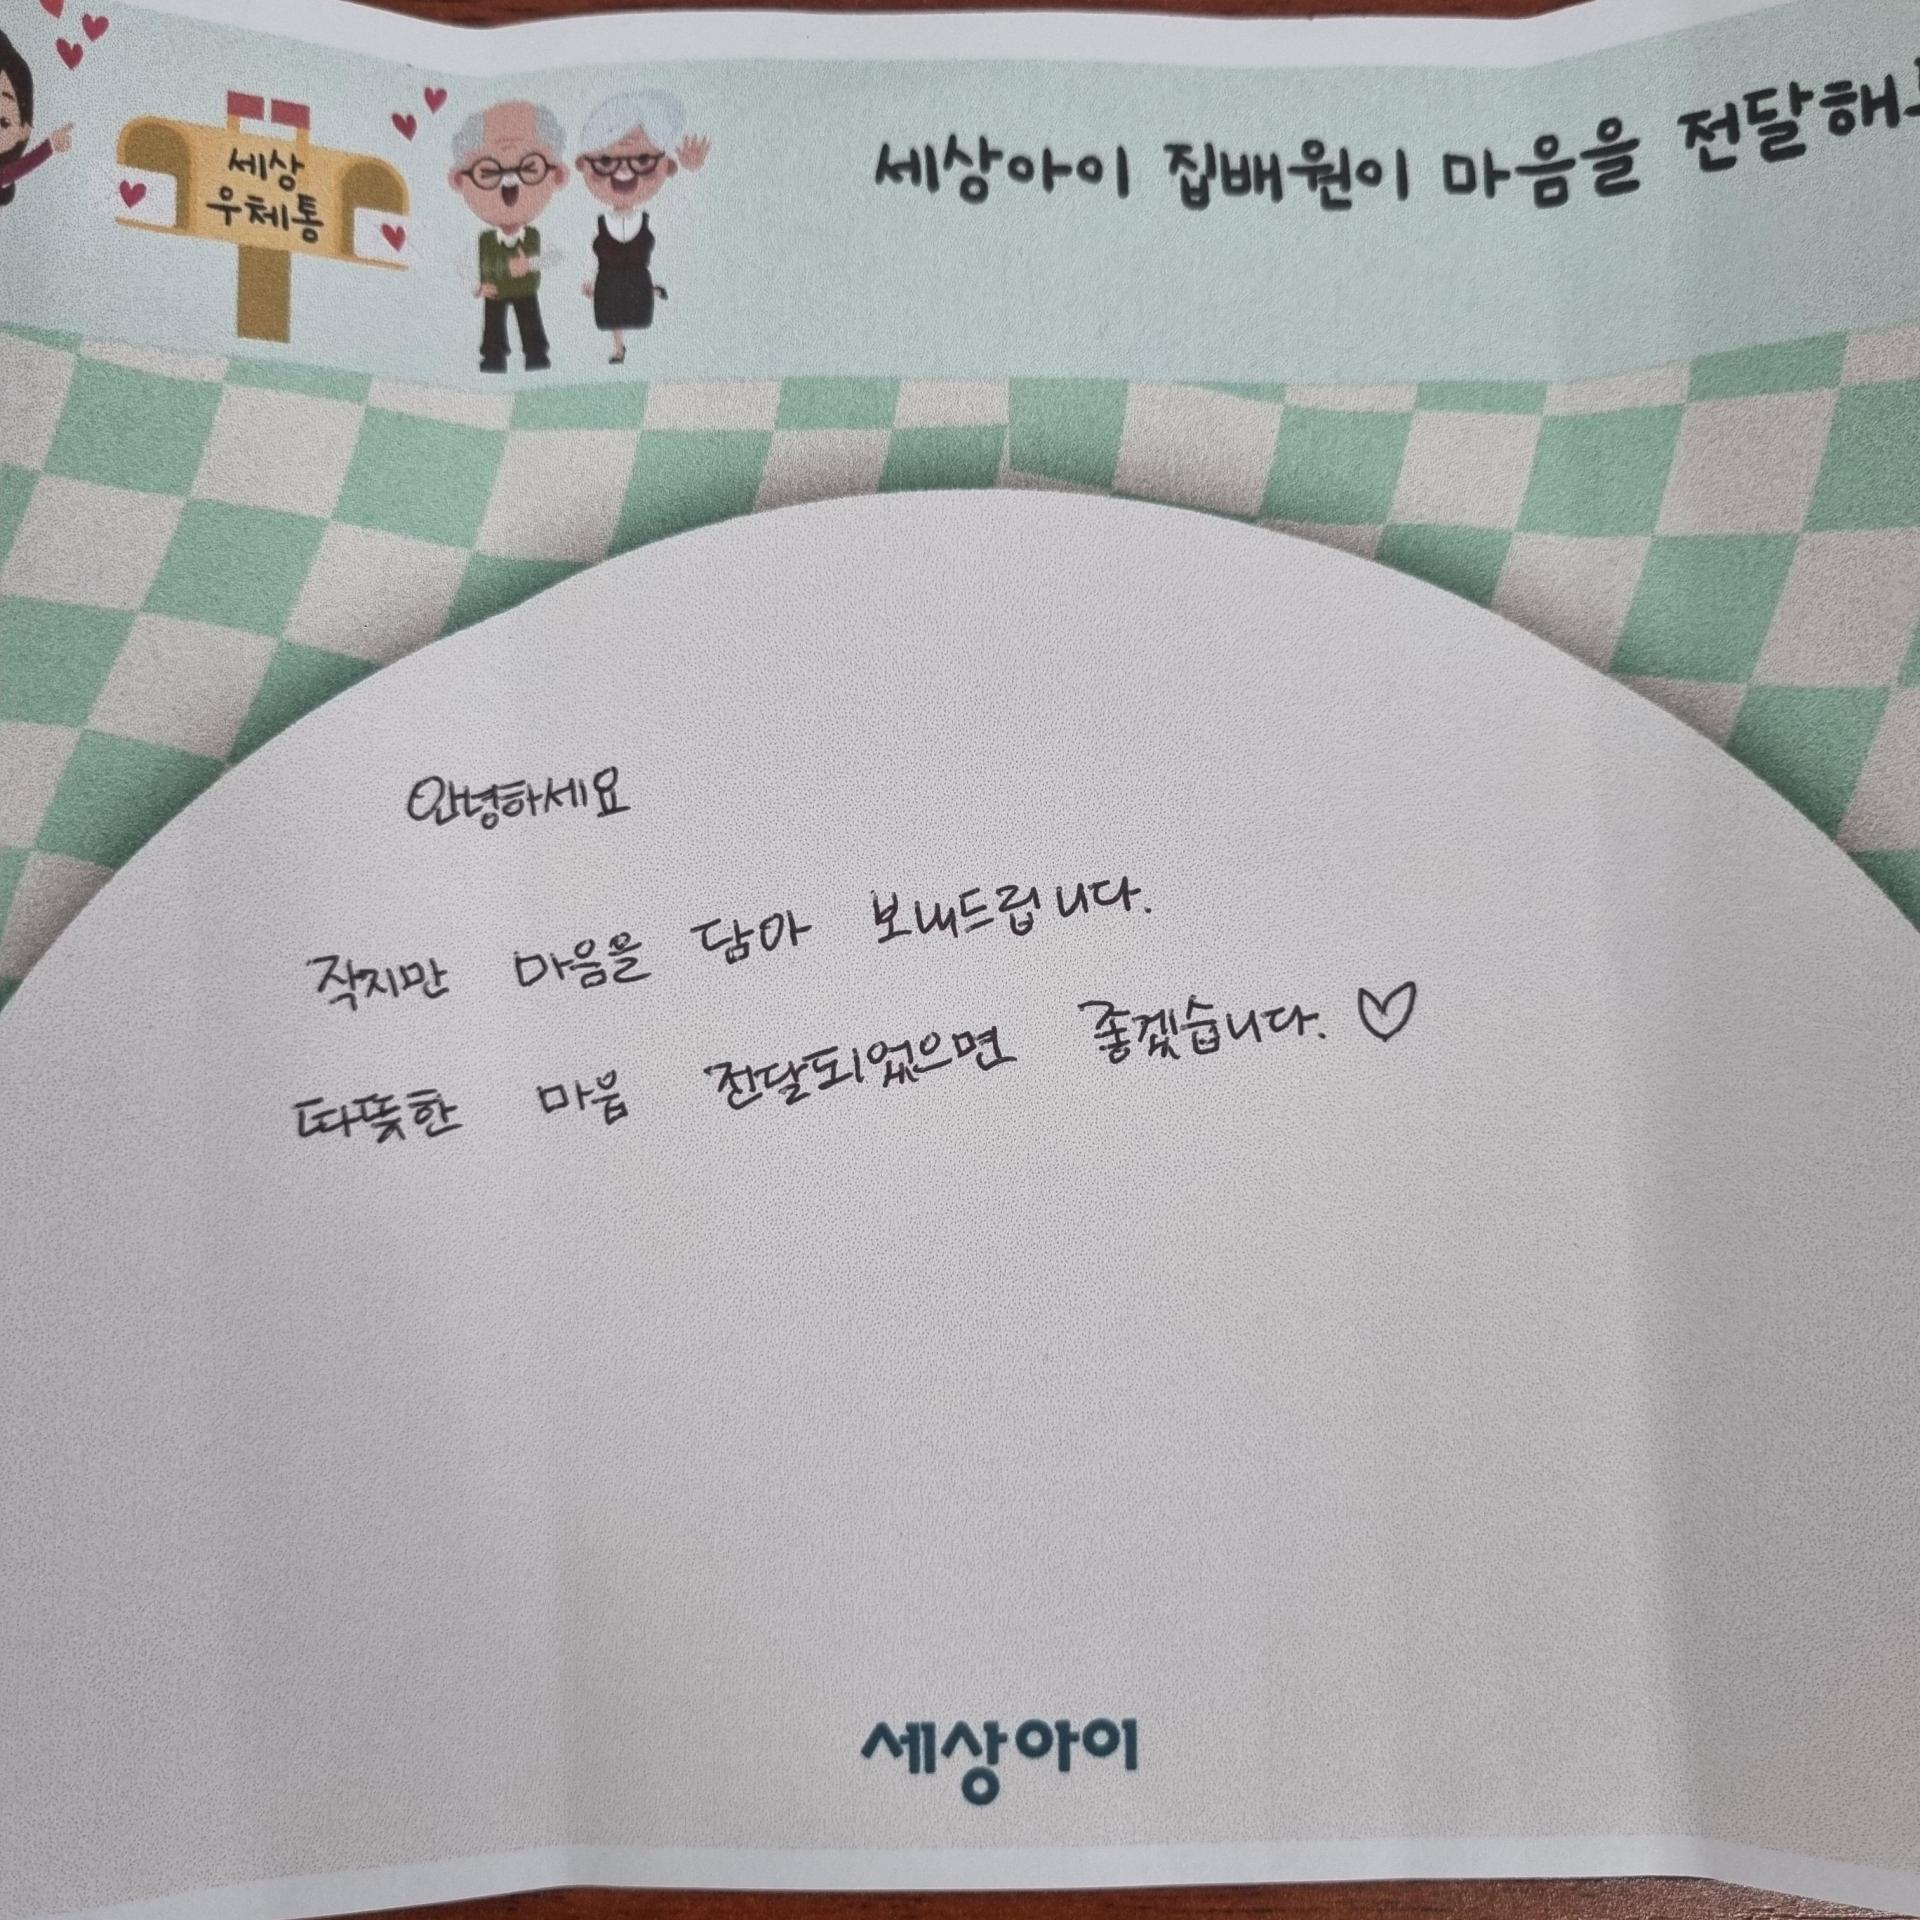 세상
우체통
세상아이 집배원이 마음을
안녕하세요
작지만 마음을 담아 보내드립니다.
따뜻한 마음 전달되었으면 좋겠습니다. ♡
세상아이